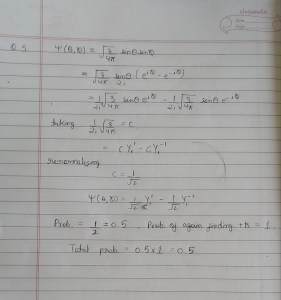 classmate
Q.5 Ψ(θ,Φ) = √(3/4π) sinθ sinΦ
= √(3/4π) sinθ/2i (e^iΦ - e^-iΦ)
= 1/2i √(3/4π) sinθ e^iΦ - 1/2i √(3/4π) sinθ e^-iΦ
taking 1/2i √(3/4π) = C
= C Y₁¹ - C Y₁⁻¹
renormalising
C = 1/√2
Ψ(θ,Φ) = 1/√2 Y₁¹ - 1/√2 Y₁⁻¹
Prob = 1/2 = 0.5 , Prob of again finding +ħ = 1
Total prob = 0.5 x 1 = 0.5